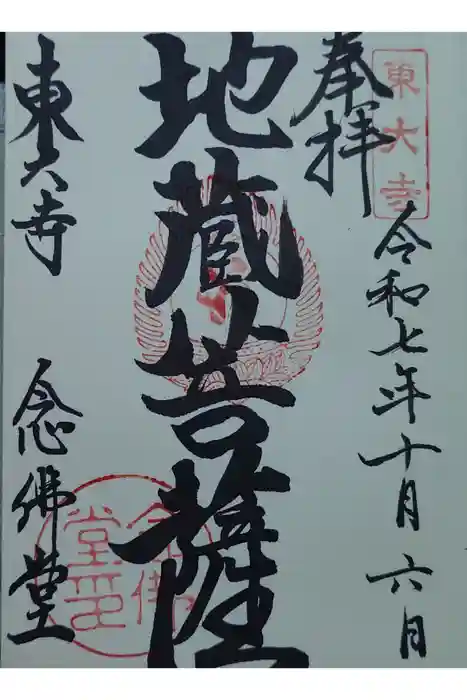 東大寺
奉拝
令和七年十月六日
地蔵菩薩
東大寺 念佛堂
念佛堂印